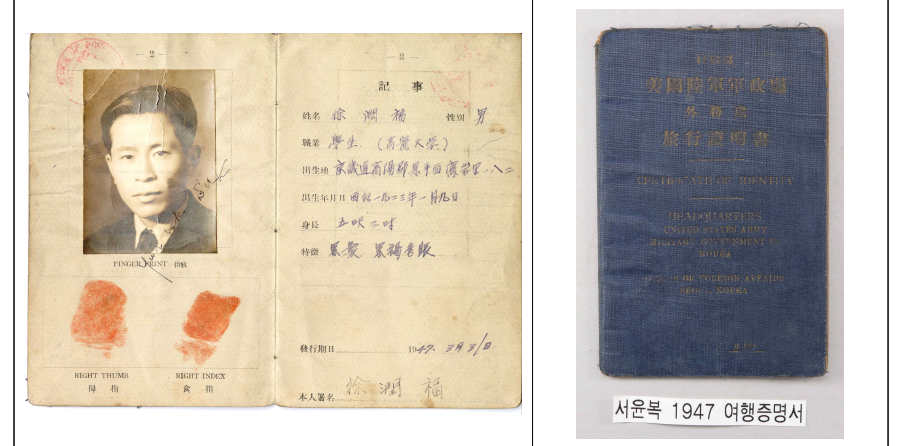 — 2 —
FINGER PRINT 指紋
RIGHT THUMB
拇指
RIGHT INDEX
食指
— 3 —
記事
姓名 徐潤福 性別 男
職業 學生 (高麗大學)
出生地 京畿道高陽郡恩平面
出生年月日 西紀一九二三年一月九日
身長 五呎二吋
特徵 黑髮 黑褐色眼
發行期日 1947. 3月31日
本人署名 徐潤福
美國陸軍軍政廳
外務處
旅行證明書
CERTIFICATE OF IDENTITY
HEADQUARTERS
UNITED STATES ARMY
MILITARY GOVERNMENT IN
KOREA
FOREIGN AFFAIRS
SEOUL, KOREA
서윤복 1947 여행증명서